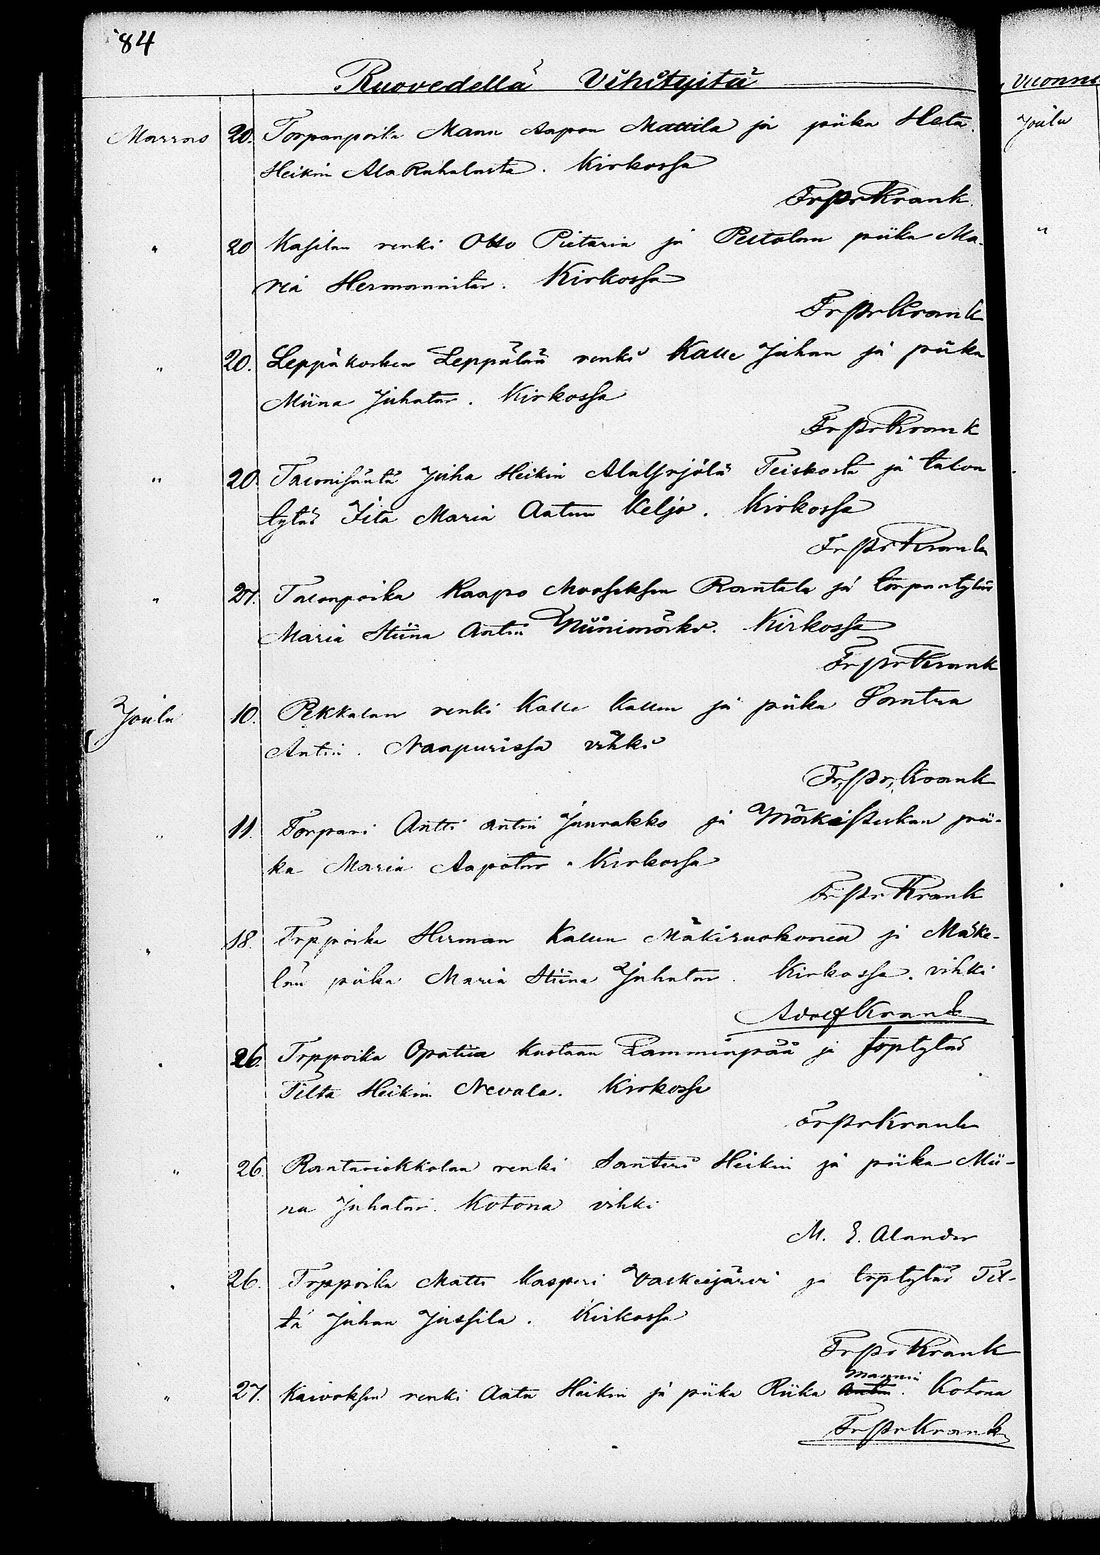 84
Ruovedellä Vihityitä
Marras 20. Torpanpoika Manu Aapon Mattila ja piika Heta
Heikin Ala Ruhalasta. Kirkossa
Fr Pr Krank
" 20 Kasilan renki Otto Pietarin ja Pestolan piika Ma-
ria Hermannitar. Kirkossa
Fr Pr Krank
" 20. Leppäkosken Leppälän renki Kalle Juhan ja piika
Miina Juhatar. Kirkossa
Fr Pr Krank
" 20. Talonisäntä Juha Heikin Teiskosta ja talon
tytär Iita Maria Antun Keljo. Kirkossa
Fr Pr Krank
" 27. Talonpoika Kaapo Mooseksen Rantala ja torpantytär
Maria Stiina Antin Kirkossa
Fr Pr Krank
Joulu 10. Pekkalan renki Kalle Kallen ja piika Santra
Antin. Naapurissa vihki
Fr, Pr, Krank
" 11. Torpari Antti Antin Jaurakko ja pii-
ka Maria Aapotar. Kirkossa
Fr Pr Krank
" 18. Trppoika Herman Kallen ja Mäke-
län piika Maria Stiina Juhatar. Kirkossa. vihki
Adolf Krank
" 26. Trppoika Kustaan Lamminpää ja trptytär
Tilta Heikin Nevala. Kirkossa
Fr Pr Krank
" 26. renki Santeri Heikin ja piika Mii-
na Juhatar. Kotona vihki
M. E. Alander
" 26. Trppoika Matti Kasperi Vaskeejärvi ja trptytär Til-
ta Juhan Jussila. Kirkossa
Fr Pr Krank
" 27. Kaivoksen renki Aatu Heikin ja piika Riika Antin Mannin. Kotona
Fr Pr Krank
Vuonna
Joulu
"